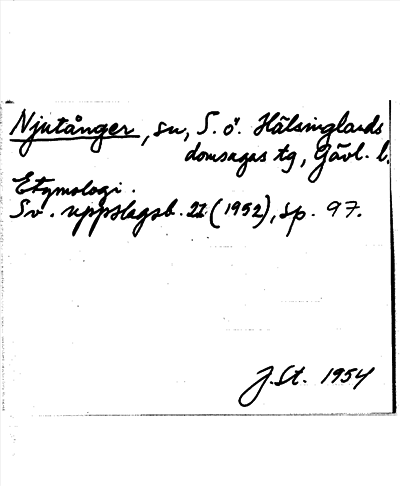 Njutånger, sn, S. ö. Hälsinglands
domsagas tg, Gävl. l.
Etymologi.
Sv. uppslagsb. 21 (1952), sp. 97.
J. St. 1954